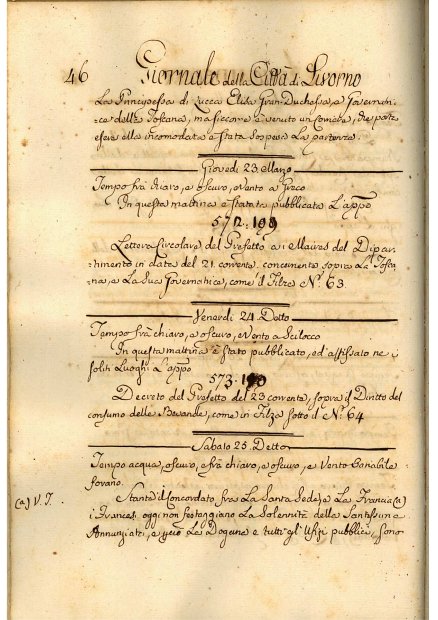 46 Giornale della Città di Livorno
La Principessa di Lucca Elisa Gran: Duchessa, e Governatri-
ce della Toscana, ma siccome è venuto un Corriere, che porta
essere ella incomodata è stata sospesa la partenza.
Giovedì 23 Marzo
Tempo frà chiaro, e oscuro, e Vento a Greco
In questa mattina è stata pubblicata L'appo
572. 199
Lettera Circolare del Prefetto a i Maires del Dipar-
timento in data del 21. corrente concernente sopra La Tosca-
na, e La Sua Governatrice, come in Filza N.° 63.
Venerdì 24. Detto
Tempo frà chiaro, e oscuro, e Vento a Scilocco
In questa mattina è stato pubblicato, ed affissato ne i
soliti Luoghi L'appo
573. 190
Decreto del Prefetto del 23 corrente, sopra il Diritto del
consumo delle Bevande, come in Filza sotto il N.° 64
Sabato 25. Detto
Tempo acqua, oscuro, e frà chiaro, e oscuro, e Vento
Stante il Concordato fra La Santa Sede, e La Francia (a)
(a) V. I.
i Francesi oggi non festeggiano La Solennità della Santissima
Annunziata, e La Dogana e tutti gl'Ufizi pubblici, sono